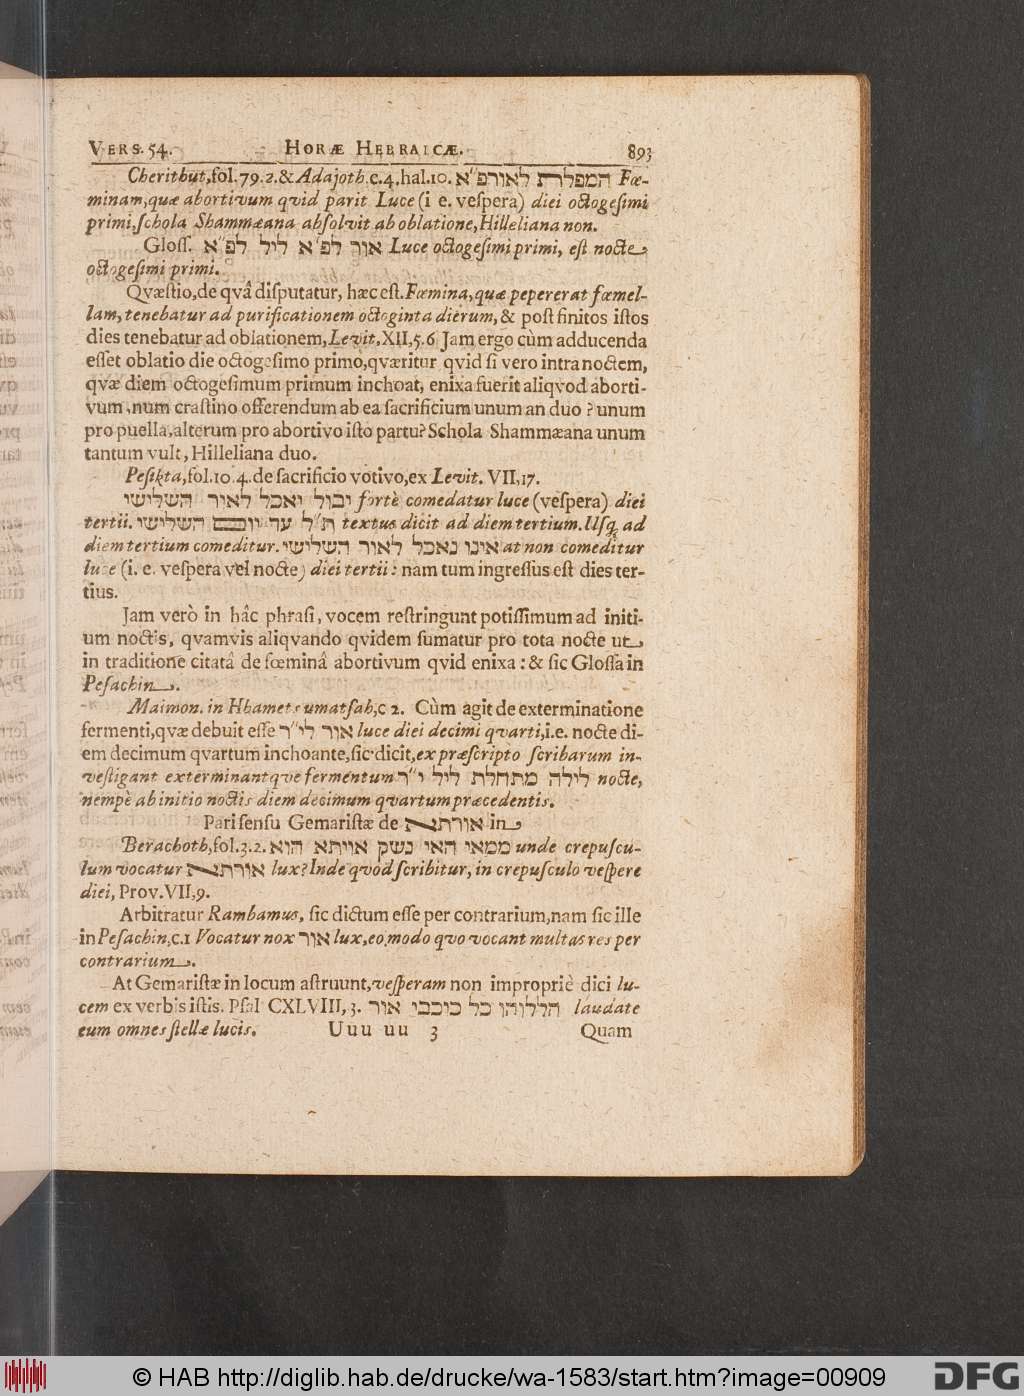 VERS. 54. HORÆ HEBRAICÆ. 893
Cherithut, fol. 79. 2. & Adajoth. c. 4. hal. 10. המפלרת לאורפ״א Fœ-
minam, quæ abortivum qvid parit Luce (i e. veſpera) diei octogeſimi
primi, ſchola Shammæana abſolvit ab oblatione, Hilleliana non.
Gloſſ. אור לפ״א ליל לפ״א Luce octogeſimi primi, eſt nocte
octogeſimi primi.
Qvæſtio, de qvâ diſputatur, hæc eſt. Fœmina, quæ pepererat fœmel-
lam, tenebatur ad purificationem octoginta dierum, & poſt finitos iſtos
dies tenebatur ad oblationem, Levit. XII, 5. 6 Jam ergo cùm adducenda
eſſet oblatio die octogeſimo primò, qværitur qvid ſi vero intra noctem,
qvæ diem octogeſimum primum inchoat, enixa fuerit aliqvod aborti-
vum, num craſtino offerendum ab ea ſacrificium unum an duo ? unum
pro puella, alterum pro abortivo iſto partu? Schola Shammæana unum
tantum vult, Hilleliana duo.
Peſikta, fol. 10. 4. de ſacrificio votivo, ex Levit. VII, 17.
יבול יאכל לאור השלישי fortè comedatur luce (veſpera) diei
tertii. ת״ל עד יום השלישי textus dicit ad diem tertium. Uſq; ad
diem tertium comeditur. אינו נאכל לאור השלישי at non comeditur
luce (i. e. veſpera vel nocte) diei tertii: nam tum ingreſſus eſt dies ter-
tius.
Jam verò in hâc phraſi, vocem reſtringunt potiſſimum ad initi-
um noctis, qvamvis aliqvando qvidem ſumatur pro tota nocte ut
in traditione citatâ de fœminâ abortivum qvid enixa: & ſic Gloſſa in
Peſachin.
Maimon. in Hhamets umatſah, c 2. Cùm agit de exterminatione
fermenti, qvæ debuit eſſe אור לי״ר luce diei decimi qvarti, i.e. nocte di-
em decimum qvartum inchoante, ſic dicit, ex præſcripto ſcribarum in-
veſtigant exterminantqve fermentum לילה מתחלת ליל י״ר nocte,
nempè ab initio noctis diem decimum qvartum præcedentis.
Pari ſenſu Gemariſtæ de אורתא in
Berachoth, fol. 3. 2. ממאי האי נשק אויתא הוא unde crepuſcu-
lum vocatur אורתא lux? Inde qvod ſcribitur, in crepuſculo veſpere
diei, Prov. VII, 9.
Arbitratur Rambamus, ſic dictum eſſe per contrarium, nam ſic ille
in Peſachin, c. 1 Vocatur nox אור lux, eo modo qvo vocant multas res per
contrarium.
At Gemariſtæ in locum aſtruunt, veſperam non impropriè dici lu-
cem ex verbis iſtis. Pſal CXLVIII, 3. הללוהו כל כוכבי אור laudate
eum omnes ſtellæ lucis. Uuu uu 3 Quam
© HAB http://diglib.hab.de/drucke/wa-1583/start.htm?image=00909
DFG